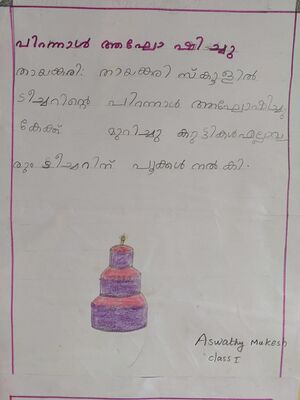 പിറന്നാൾ ആഘോഷിച്ചു
തായങ്കരി: തായങ്കരി സ്കൂളിൽ
ടീച്ചറിന്റെ പിറന്നാൾ ആഘോഷിച്ചു
കേക്ക് മുറിച്ചു കുട്ടികൾഎല്ലാവ
രും ടീച്ചറിന് പൂക്കൾ നൽകി.
Aswathy Mukesh
class I